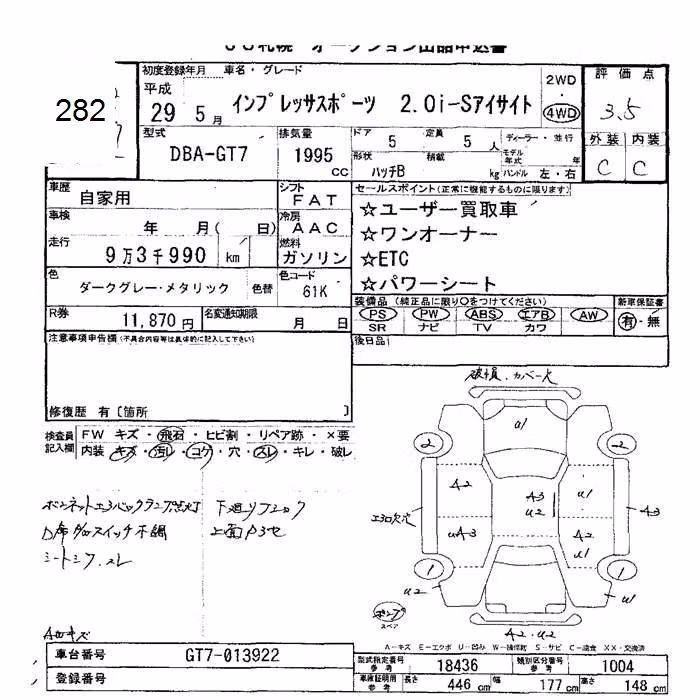 282
初度登録年月 車名・グレード
平成
29 5月 インプレッサスポーツ 2.0i-Sアイサイト
2WD
・
4WD
評価点
3.5
外装 内装
C C
型式 DBA-GT7
排気量 1995 CC
ドア 5
定員 5人
ディーラー・並行
形状 ハッチB
積載 kg
モデル年式 年
ハンドル 左・右
車歴 自家用
シフト FAT
車検 年 月( 日)
冷房 AAC
走行 9万3千990 km
燃料 ガソリン
色 ダークグレー・メタリック 色替
色コード 61K
R券 11,870円
名変通知期限 月 日
セールスポイント(正常に機能するものに限ります)
☆ユーザー買取車
☆ワンオーナー
☆ETC
☆パワーシート
装備品(純正品に限り〇をつけてください)
新車保証書
PS PW ABS エアB AW
有・無
SR ナビ TV カワ
後日品
注意事項申告欄(不具合内容等は具体的に記入して下さい)
修復歴 有〔箇所 〕
検査員記入欄
FW キズ・飛石・ヒビ割・リペア跡・×要
内装 キズ・汚レ・コゲ・穴・スレ・キレ・破レ
破損.カバー欠
a1
2 2
A2
A3
u2
u1
A3
uA3
A2
u1
1 1
u2
u1
スペア
A2.u2
A-キズ E-エクボ U-凹み W-補修跡 S-サビ C-腐食 XX-交換済
車台番号 GT7-013922
登録番号
型式指定番号 参考 18436
類別区分番号 参考 1004
車庫証明用 参考 長さ 446 cm 幅 177 cm 高さ 148 cm